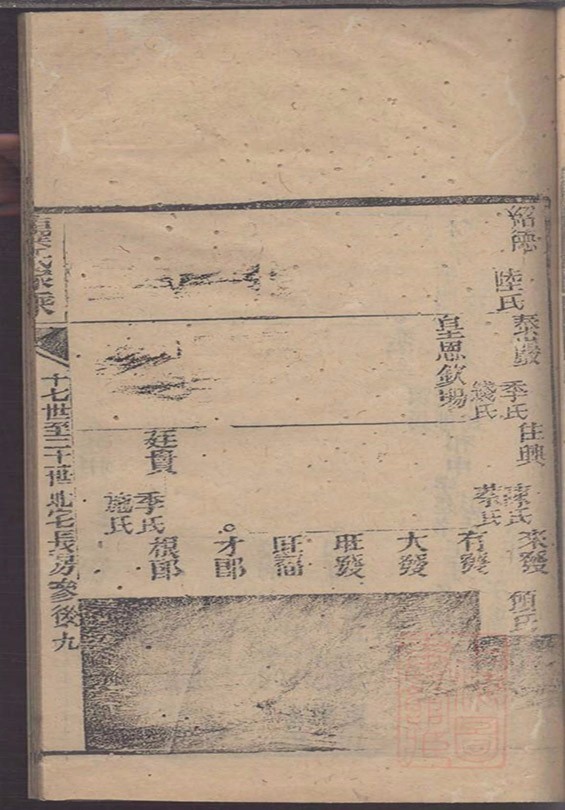 紹德
陸氏
泰發
季氏
錢氏
佳興
陳氏
蔡氏
來發
顧氏
皇恩欽賜
有發
大發
旺發
旺福
才郎
廷貴
季氏
施氏
根郎
十七世至二十世北宅長房參後九